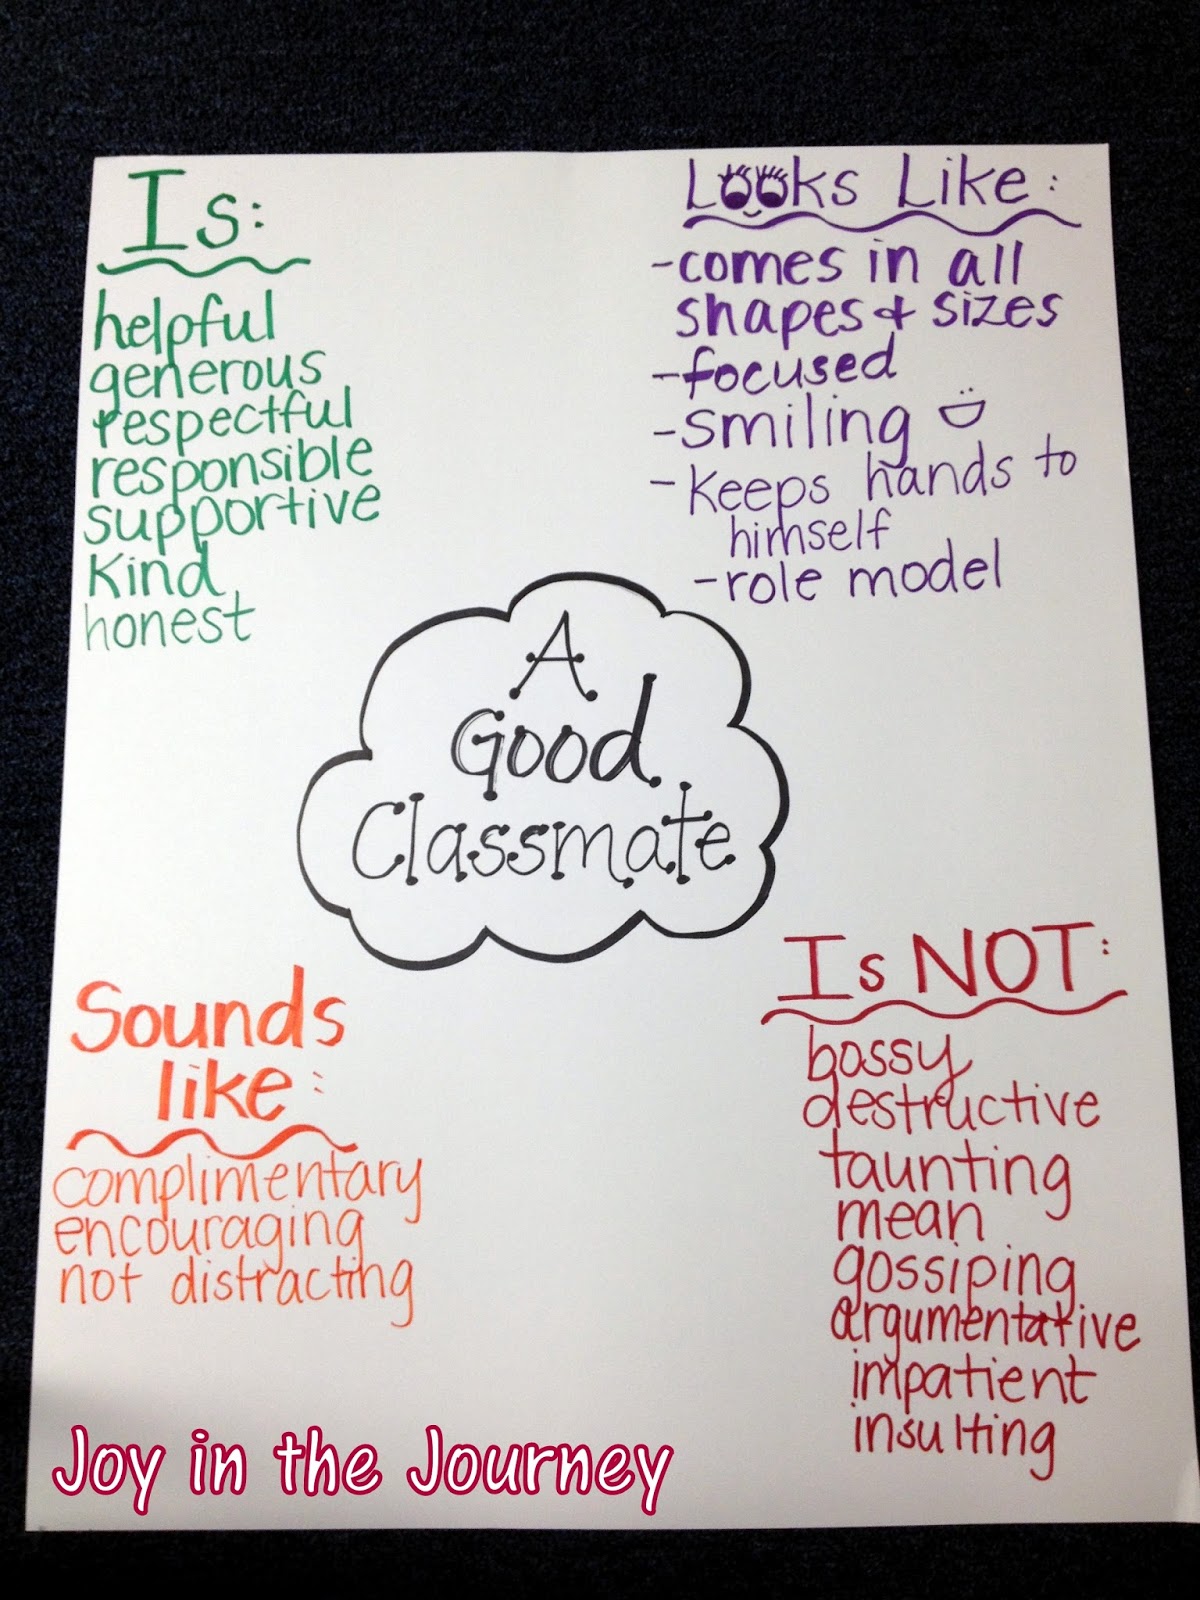 Is:
helpful
generous
respectful
responsible
supportive
kind
honest
Looks Like:
-comes in all
shapes & sizes
-focused
-smiling
-keeps hands to
himself
-role model
A
Good
Classmate
Sounds
like:
complimentary
encouraging
not distracting
Is NOT:
bossy
destructive
taunting
mean
gossiping
argumentative
impatient
insulting
Joy in the Journey